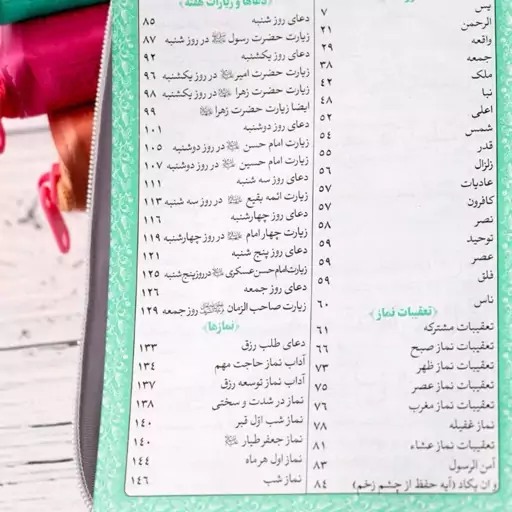 یس ۷
الرحمن ۲۱
واقعه ۲۹
جمعه ۳۸
ملک ۴۲
نبا ۴۸
اعلی ۵۲
شمس ۵۴
قدر ۵۵
زلزال ۵۶
عادیات ۵۷
کافرون ۵۷
نصر ۵۸
توحید ۵۹
عصر ۵۹
فلق ۵۹
ناس ۶۰
﴿تعقیبات نماز﴾
تعقیبات مشترکه ۶۱
تعقیبات نماز صبح ۶۶
تعقیبات نماز ظهر ۷۳
تعقیبات نماز عصر ۷۵
تعقیبات نماز مغرب ۷۶
نماز غفیله ۷۸
تعقیبات نماز عشاء ۸۱
آمن الرسول ۸۳
و ان یکاد (آیه حفظ از چشم زخم) ۸۴
﴿دعاها و زیارات هفته﴾
دعای روز شنبه ۸۵
زیارت حضرت رسول ﷺ در روز شنبه ۸۷
دعای روز یکشنبه ۹۲
زیارت حضرت امیر در روز یکشنبه ۹۶
زیارت حضرت زهرا در روز یکشنبه ۹۸
ایضا زیارت حضرت زهرا ۹۹
دعای روز دوشنبه ۱۰۱
زیارت امام حسن در روز دوشنبه ۱۰۵
زیارت امام حسین در روز دوشنبه ۱۰۷
دعای روز سه شنبه ۱۱۱
زیارت ائمه بقیع در روز سه شنبه ۱۱۳
دعای روز چهارشنبه ۱۱۶
زیارت چهار امام در روز چهارشنبه ۱۱۹
دعای روز پنج شنبه ۱۲۱
زیارت امام حسن عسکری در روز پنج شنبه ۱۲۵
دعای روز جمعه ۱۲۶
زیارت صاحب الزمان روز جمعه ۱۲۹
﴿نمازها﴾
دعای طلب رزق ۱۳۳
آداب نماز حاجت مهم ۱۳۴
آداب نماز توسعه رزق ۱۳۷
نماز در شدت و سختی ۱۳۸
نماز شب اوّل قبر ۱۴۰
نماز جعفر طیار ۱۴۰
نماز اول هر ماه ۱۴۴
نماز شب ۱۴۶